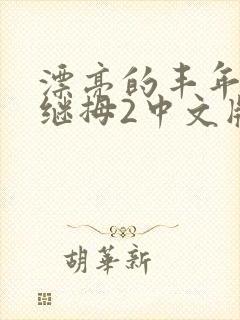 漂亮的丰年
继拇2中文版
胡華新